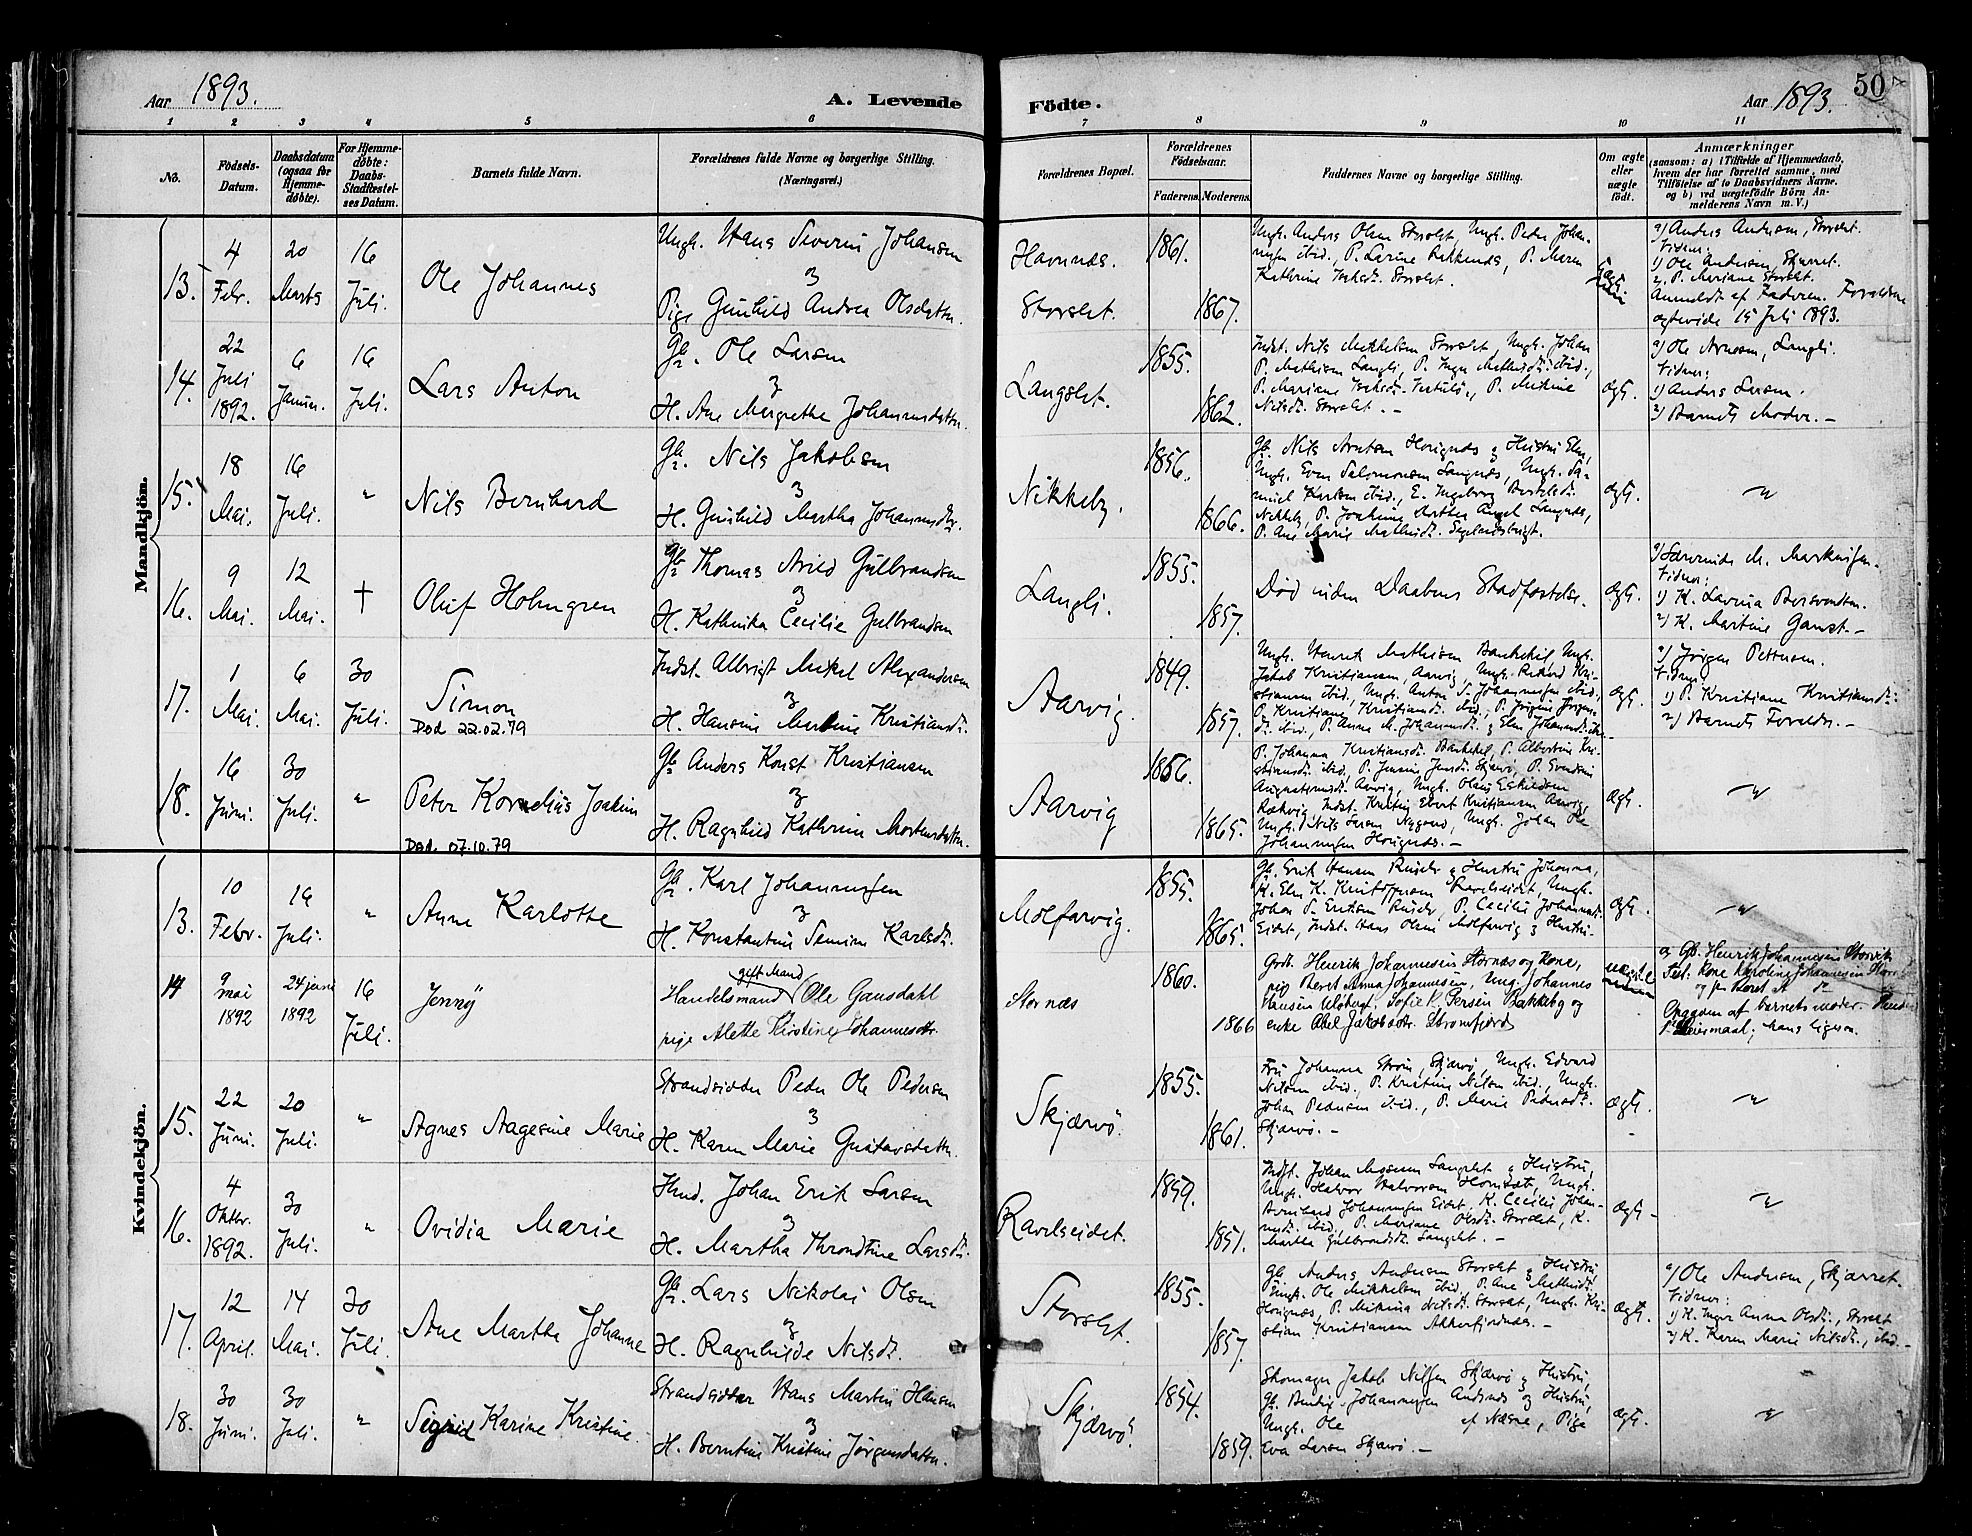 Aar 1893.
A. Levende
Födte.
Aar 1893.
50
1 2 3 4 5 6 7 8 9 10 11
No.
Födsels-
Datum.
Daabsdatum
(ogsaa for
Hjemme-
døbte).
For Hjemme-
døbte:
Daabs-
Stadfæstel-
ses Datum.
Barnets fulde Navn.
Forældrenes fulde Navne og borgerlige Stilling.
(Næringsvei.)
Forældrenes Bopæl.
Forældrenes
Födselsaar.
Faderens. Moderens.
Faddernes Navne og borgerlige Stilling.
Om ægte
eller
uægte
født.
Anmærkninger
(saasom: a) i Tilfælde af Hjemmedaab,
hvem der har forrettet samme, med
Tilföielse af to Daabsvidners Navne,
og b) ved uægtefödte Börn An-
melderens Navn m. V.)
Mandkjön.
13.
4
Febr.
20
Marts
16
Juli.
Ole Johannes
Ungk. Hans Severin Johansen
&
Pige Gunhild Andrea Olsdatter.
Havnnæs.
Storslet.
1861.
1867.
Ungk. Anders Olsen Storslet, Ungk. Peder Johan-
nesen ibid., P. Larine Bakkenæs, P. Maren
Kathrine Storslet.
a) Anders Andersen, Storslet.
Vidner:
1) Ole Andersen, Skjærret.
2) P. Mariane Storslet.
Anmeldt af Faderen. Forældrene
ægteviede 15 Juli 1893.
14.
22
Juli
1892.
6
Januar.
16
Juli.
Lars Anton
Gb. Ole Larsen
&
H. Ane Margrethe Johannesdatter.
Langslet.
1855.
1862.
Indst. Nils Mikkelsen Storslet, Ungk. Johan
P. Mathisen Langli, P. Inga Mathisdt. ibid.,
P. Mariane P. Mikine
Nilsdt. Storslet. –
ægt.
a) Ole Arnesen, Langli.
Vidner:
1) Anders Larsen.
2) Barnets Moder. –
15.
18
Mai.
16
Juli.
"
Nils Bernhard
Gb. Nils Jakobsen
&
H. Gunhild Martha Johannesdtr.
Nikkeby.
1856.
1866.
Gb. Nils Arntsen Haugnæs & Hustru Elen,
Ungk. Even Salomonsen Langnæs, Ungk. Sa-
muel Karlsen ibid., E. Ingeborg Bertelsdt.
Nikkeby, P. Joakine Langnæs,
P. Ane Marie Mathisdt.
ægt.
"
16.
9
Mai.
12
Mai.
†
Oluf Holmgren
Gb. Thomas Arild Gulbrandsen
&
H. Kathinka Cecilie Gulbrandsen
Langli.
1855.
1857.
Død inden Daabens Stadfæstelse.
ægt.
Vidner:
1) K. Lavina
2) K. Martine Gamst. –
17.
1
Mai.
6
Mai.
30
Juli.
Simon
Død 22.02.79
Indst. Albrigt Mikal Alexandersen
&
H. Hansine Martine Kristiansdt.
Aarvig.
1849.
1857.
Ungk. Henrik Mathisen Bankekil, Ungk.
Jakob Kristiansen, Aarvig, Ungk. Rikard Kri-
stiansen ibid., Ungk. Anton S. Johannesen ibid.,
P. Kristiane Kristiansdt. ibid., P. Jørgine Jørgens-
dt. ibid., P. Anna M. Johannesdt. & Elen Johannesdt.
ægt.
a) Jørgen Pettersen.
Vidner:
1) P. Kristiane Kristiansdt.
2) Barnets Forældre. –
18.
16
Juni.
30
Juli.
"
Peter Kornelius Joakim
Død. 07.10.79
Gb. Anders Konst. Kristiansen
&
H. Ragnhild Kathrine Mortensdatter.
Aarvig
1856.
1865.
P. Johanna Kristiansdt. Bankekil, P. Albertine Kri-
stiansdt. ibid., P. Jensine Jensdt. Skjærvø,
Aarvig, Ungk. Olaus Eskildsen
Rækvig, Indst. Kristen Ebert Kristiansen Aarvig,
Ungk. Nils Larsen Nygaard, Ungk. Johan Ole
Johannesen Haugnæs. –
ægt.
"
Kvindekjön.
13.
10
Febr.
16
Juli.
"
Anne Karlotte
Gb. Karl Johannesen
&
H. Konstantine Semine Karlsdt.
Molfarvig.
1855.
1865.
Gb. Erik Hansen & Hustru Johanna,
K. Elen K. Kristoffersen Ravelseidet, Ungk.
Johan P. Eriksen P. Cecilie Johannesdt.
Eidet, Indst. Hans Olsen Molfarvig & Hustru. –
ægt.
"
14
9
mai
1892
24 juni
1892
16
Juli.
Jenny
gift Mand
Handelsmand Ole Gausdahl
pige Alette Kirstine Johannesdtr.
Stornæs
1860.
1866
Gaardb. Henrik Johannessen Stornæs og Kone,
pig Beret Anna Johannesen, Ung. Johannes
Hansen Uløbugt, Sofie P. Persen Bakkeby og
enke Abel Jakobsdtr. Strømfjord
uægte
a. Gb. Henrik Johannesen Storvik
Test. Kone Karoline Johannesen
og pig Beret A.
Opgaven af barnets moder.
Leiermaal; hans ligesaa.
15.
22
Juni.
20
Juli.
"
Agnes Aagesine Marie
Strandsidder Peder Ole Pedersen
&
H. Karen Marie Gustavsdatter.
Skjærvø.
1855.
1861.
Fru Johanna Strøm, Skjærvø, Ungk. Edvard
Nilsen ibid., P. Kristine Nilsen ibid., Ungk.
Johan Pedersen ibid., P. Marie Pedersdt.
Skjærvø. –
ægt.
"
16.
4
Oktbr.
1892.
30
Juli.
"
Ovidia Marie
Hmd. Johan Erik Larsen
&
H. Martha Throndtine Larsdt.
Ravelseidet.
1859.
1851.
Indst. Johan Mosesen Langslet & Hustru,
Ungk. Halvor Halvorsen Ungk.
Bernhard Johannesen Eidet, K. Cecilie Johan-
nesdt. ibid., P. Mariane Olsdt. Storslet, K.
Martha Gulbrandsdt. Langslet. –
ægt. –
"
17.
12
April.
14
Mai.
30
Juli.
Ane Martha Johanne
Gb. Lars Nikolai Olsen
&
H. Ragnhilde Nilsdt.
Storslet.
1855.
1857.
Gb. Anders Andersen Storslet & Hustru,
Ungk. Ole Mikkelsen ibid., P. Ane Mathisdt.
Haugnæs, P. Mikina Nilsdt. Storslet, Ungk. Kri-
stian Kristiansen Akkarfjordnæs. –
ægt.
a) Ole Andersen, Skjærret.
Vidner:
1) K. Inger Anna Olsdt., Storslet
2) K. Karen Marie Nilsdt., ibid. –
18.
30
Juni.
30
Juli.
"
Sigrid Karine Kristine
Strandsidder Hans Martin Hansen
&
H. Berntine Kristine Jørgensdatter.
Skjærvø.
1854.
1859.
Skomager Jakob Nilsen Skjærvø & Hustru,
Gb. Johannesen & Hustru,
Ungk. Ole af Næsne, Pige
Eva Larsen Skjærvø. –
ægt.
"